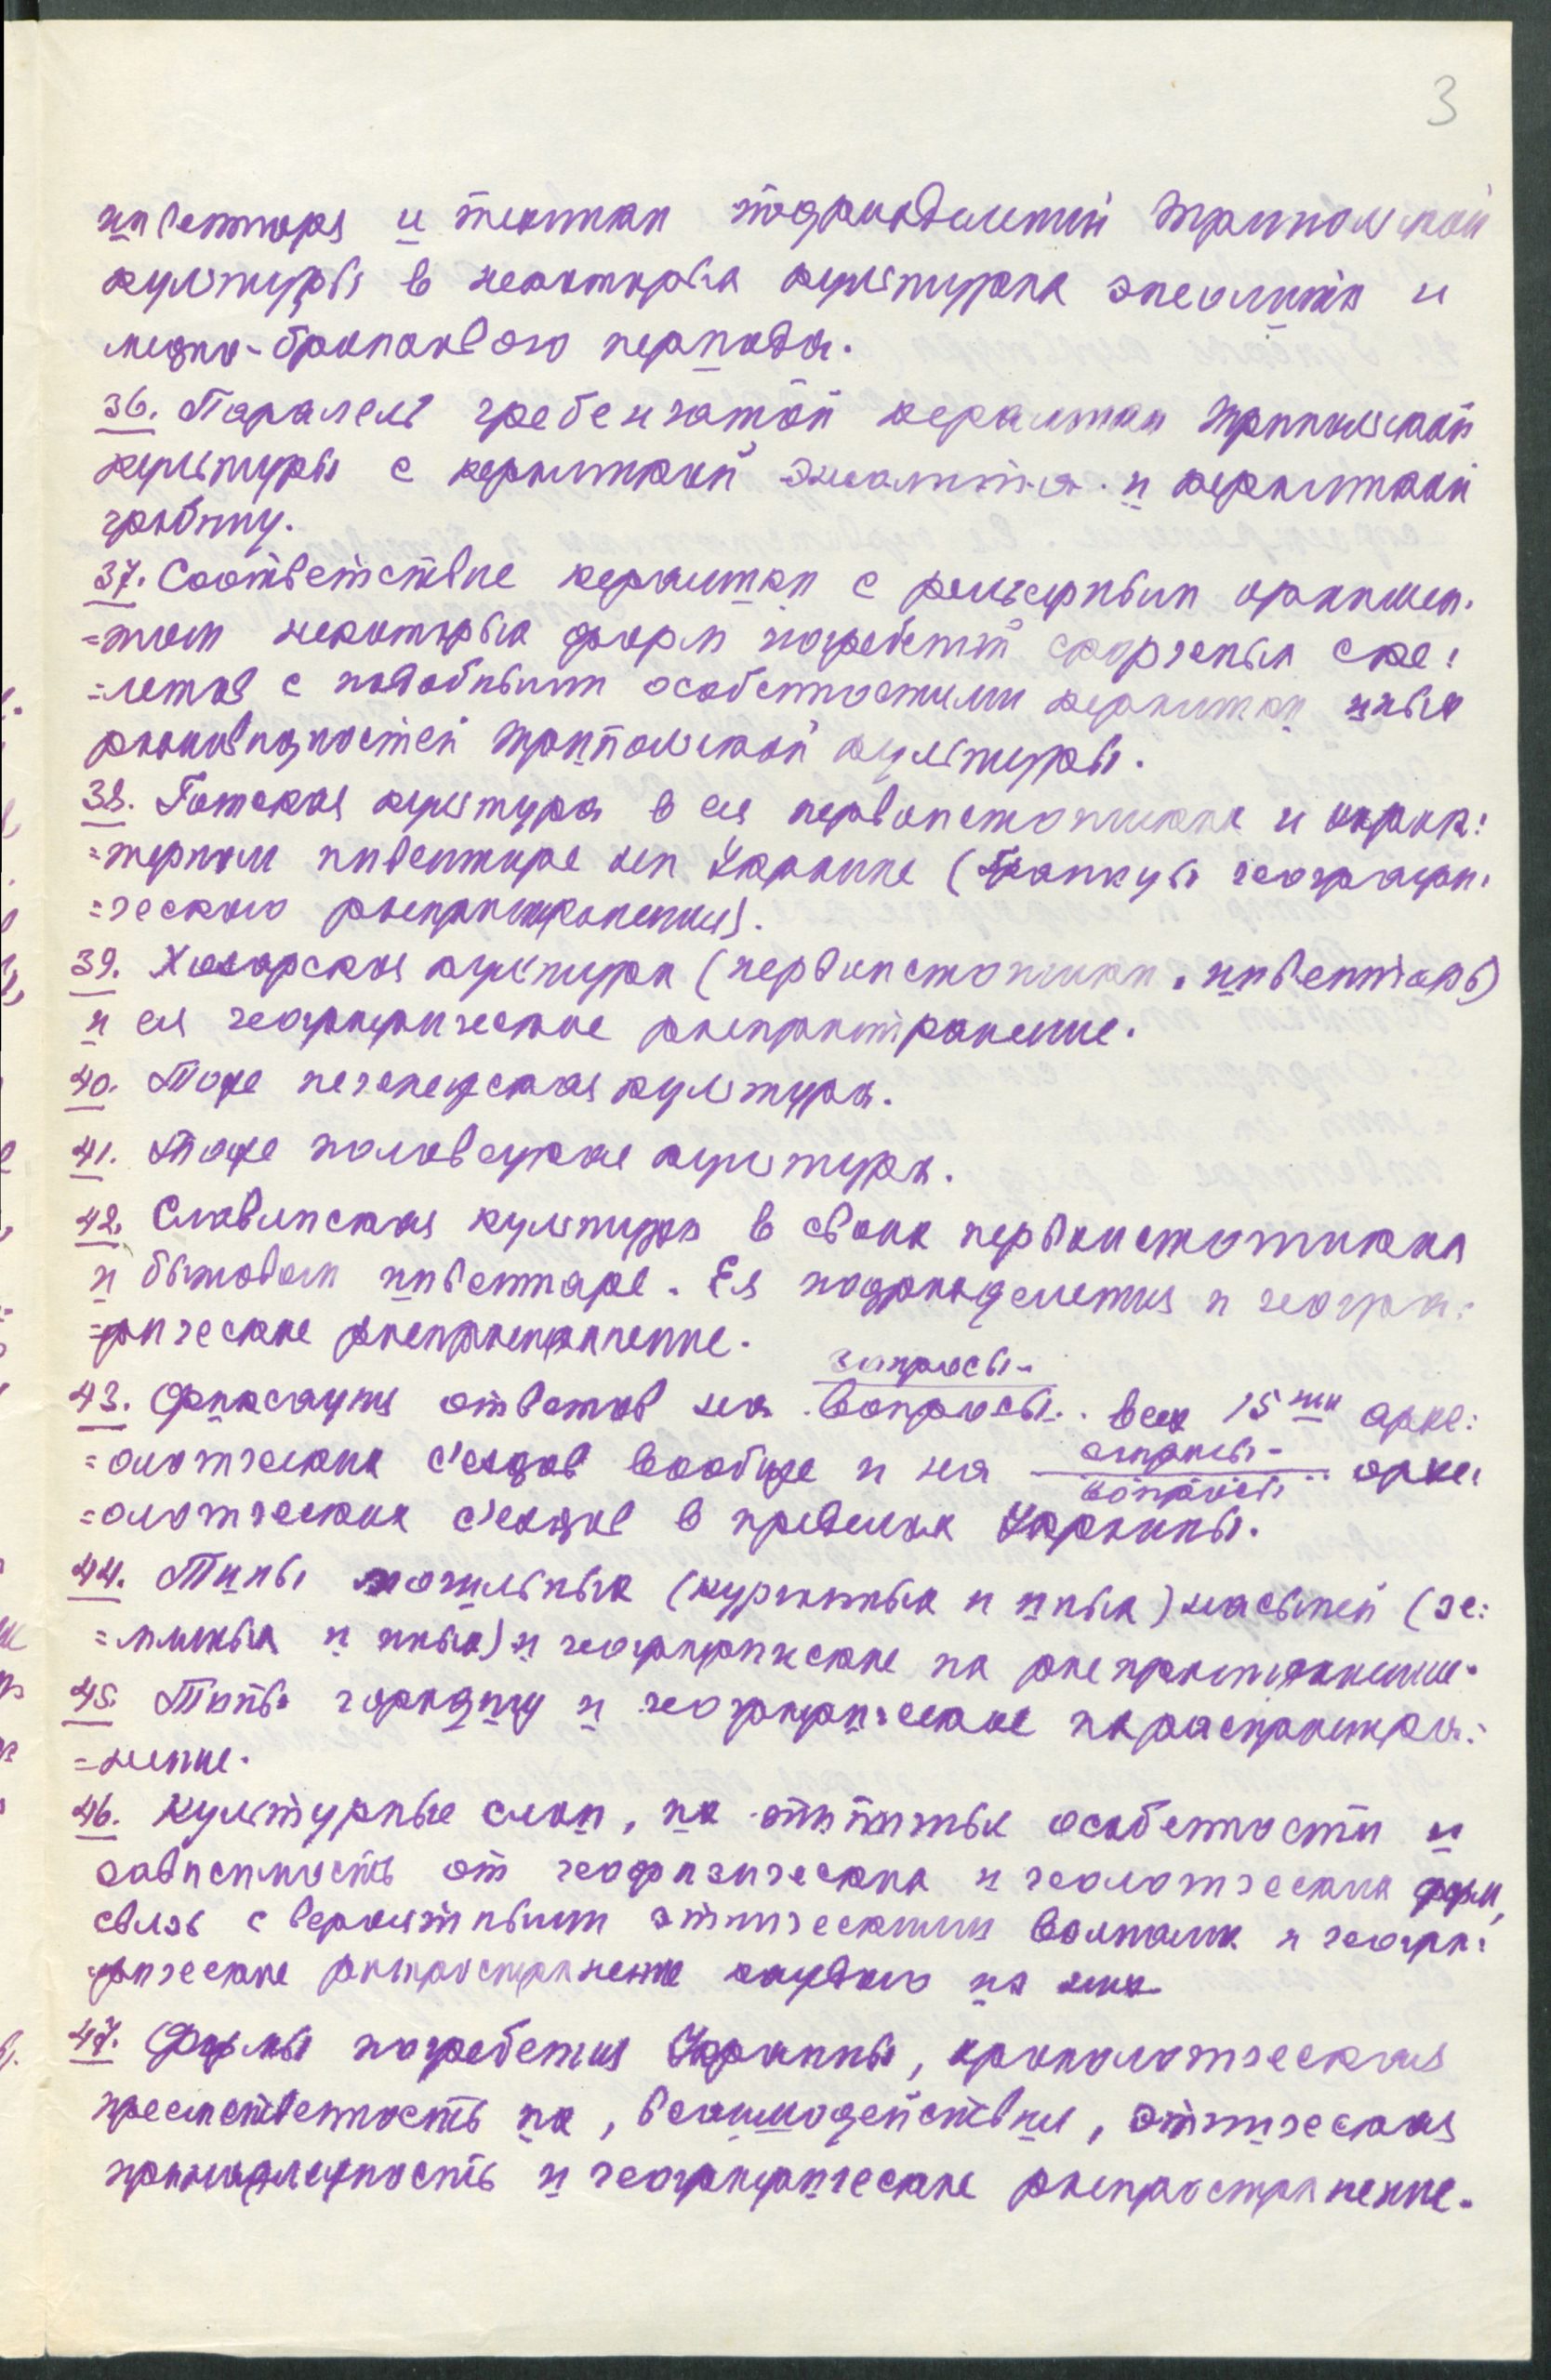 3
инвентаря и техники подразделений трипольской
культуры в некоторых культурах энеолита и
медно-бронзового периода.
36. Паралель гребенчатой керамики трипольской
культуры с керамикой энеолита и керамикой
грабину.
37. Соответствие керамики с рельефным орнамен:
=том некоторых форм погребений скорченых ске:
=летов с подобными особенностями керамики иных
разновидностей трипольской культуры.
38. Готская культура в ея первоисточниках и харак:
=терном инвентаре на Украине (границы географи:
=ческого распространения).
39. Хозарская культура (первоисточники, инвентарь)
и ея географическое распространение.
40. Тоже печенежская культура.
41. Тоже половецкая культура.
42. Славянская культура в своих первоисточниках
и бытовом инвентаре. Ея подразделения и геогра:
=фическое распространение.
запросы-
43. Фиксация ответов на вопросы всех 15ти архе:
=ологических с'ездов вообще и на запросы-вопросы архе:
=ологических с'ездов в пределах Украины.
44. Типы могильных (курганных и иных) насыпей (зе:
=мляных и иных) и географическое их распространение.
45. Типы городищ и географическое их распростра:
=нение.
46. Культурные слои, их типичные особенности и
зависимость от геофизических и геологических форм,
связь с вероятными этническими волнами и геогра:
фическое распространение каждого из них.
47. Формы погребения Украины, хронологическая
преемственность их, взаимодействия, этническая
принадлежность и географическое распространение.